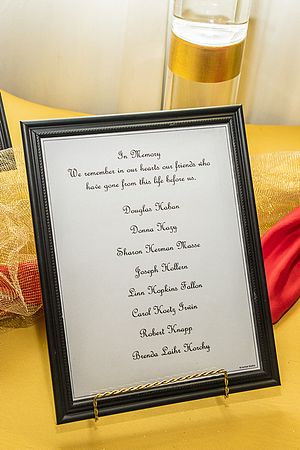 In Memory
We remember in our hearts our friends who
have gone from this life before us.
Douglas Haban
Donna Hazy
Sharon Herman Masse
Joseph Hollern
Linn Hopkins Fallon
Carol Koetz Irwin
Robert Knapp
Brenda Laihr Horchy